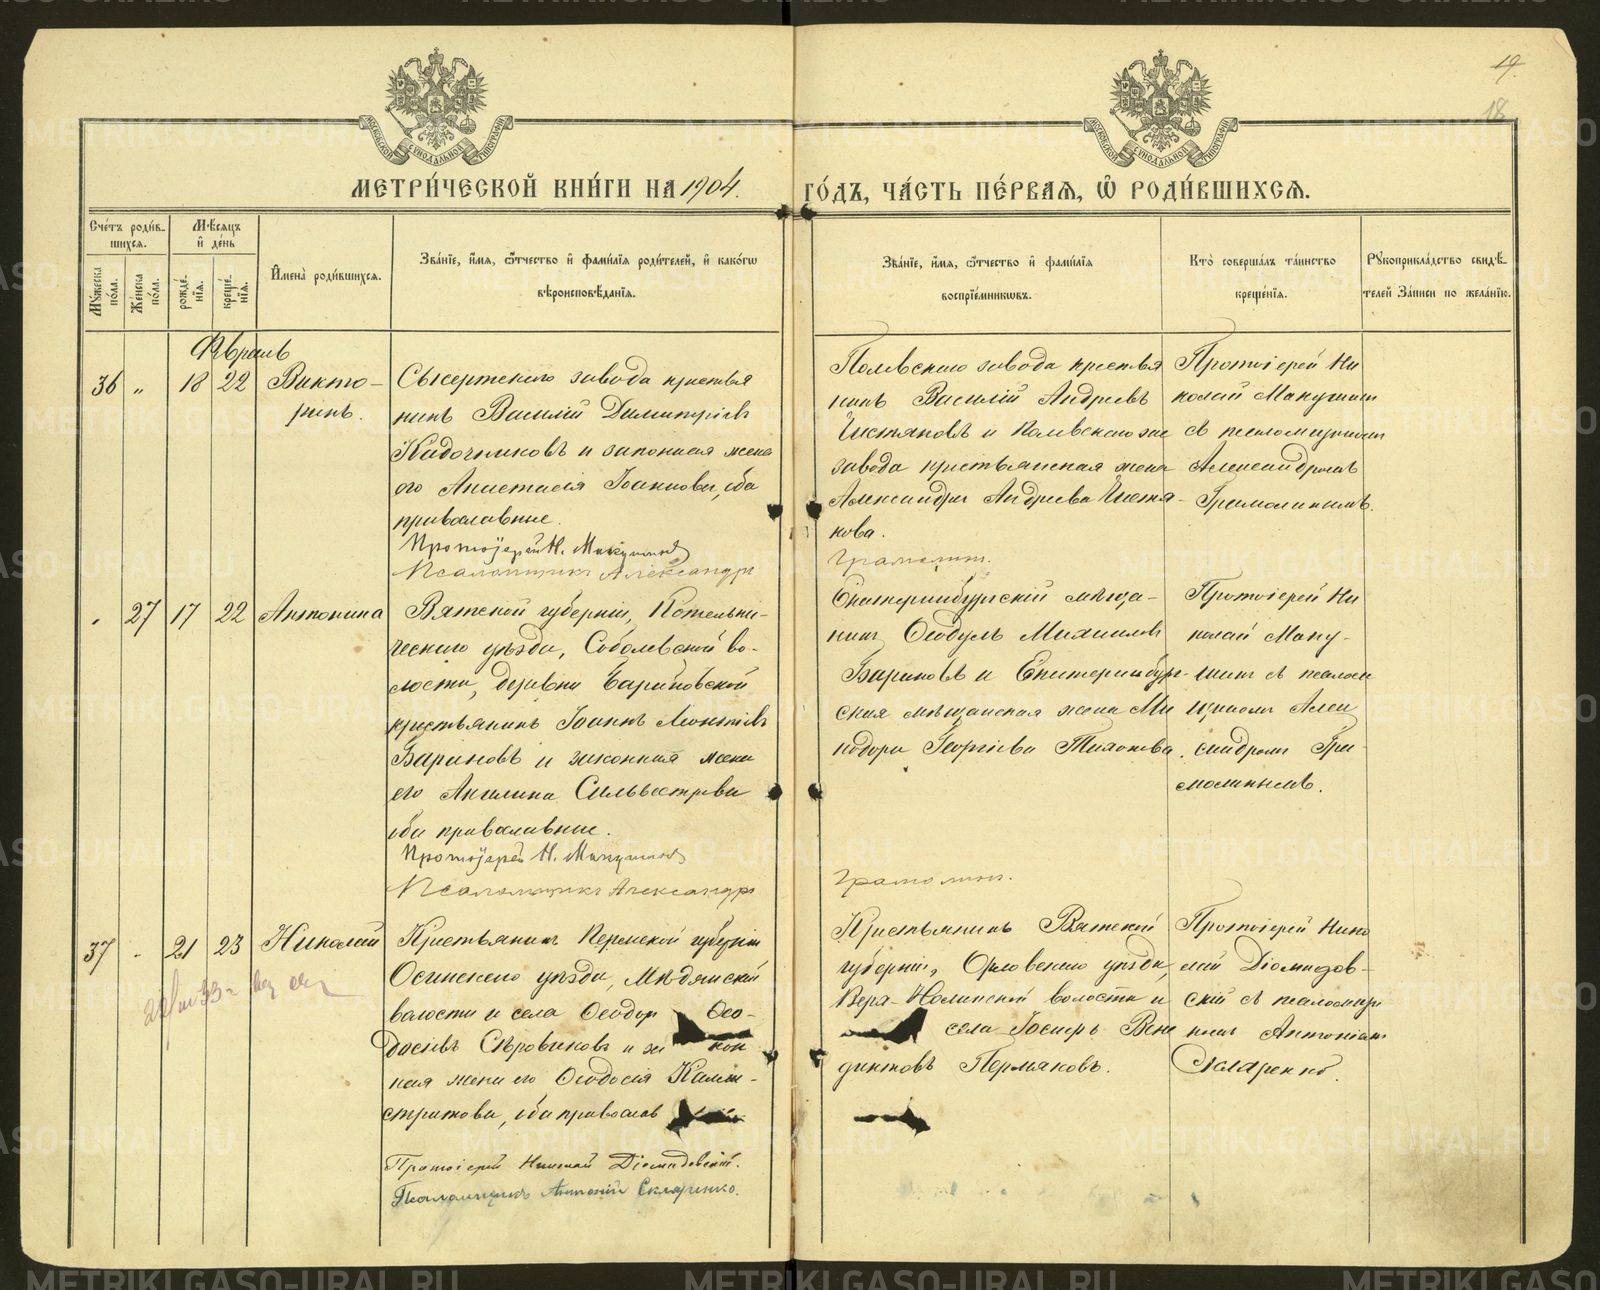 19.
18
МОСКОВСКОЙ СѴНОДАЛЬНОЙ ТИПОГРАФІИ
МОСКОВСКОЙ СѴНОДАЛЬНОЙ ТИПОГРАФІИ
МЕТРИ́ЧЕСКОЙ КНИ́ГИ НА 1904.
ГО́ДЪ, ЧА́СТЬ ПЕ́РВАЯ, Ѡ҆ РОДИ́ВШИХСЯ.
Сче́тъ роди́в-
шихся.
Мꙋ́жеска по́ла.
Же́нска по́ла.
Мѣ́сяцъ
и҆ де́нь
рожде́-
нїя.
креще́-
нїя.
И҆мена̀ роди́вшихся.
Зва́нїе, и҆́мя, ѻ҆́тчество и҆ фами́лїя роди́телей, и҆ како́гѡ
вѣроисповѣ́данїя.
Зва́нїе, и҆́мя, ѻ҆́тчество и҆ фами́лїя
воспрїе́мникѡвъ.
Кто̀ соверша́лъ та́инство
креще́нїя.
Рꙋкоприкла́дство свидѣ́-
телей За́писи по жела́нїю.
Февраль
36 „ 18 22 Викто-
ринъ.
Сысертскаго завода крестья
нинъ Василій Димитріевъ
Кадочниковъ и законная жена
его Анастасія Іоаннова, оба
православные.
Протоіерей Н. Макушинъ
Псаломщикъ Александръ
Полевскаго завода крестья
нинъ Василій Андреевъ
Чистяковъ и Полевскаго же
завода крестьянская жена
Александра Андреева Чистя-
кова.
Грамолин.
Протоіерей Ни
колай Макушинъ
съ псаломщикомъ
Александромъ
Грамолинымъ.
„ 27 17 22 Антонина
Вятской губерніи, Котельни-
ческаго уѣзда, Соболевской во-
лости, деревни Бариновской
крестьянинъ Іоаннъ Леонтіевъ
Бариновъ и законная жена
его Акилина Сильвестрова
оба православные.
Протоіерей Н. Макушинъ
Псаломщикъ Александръ
Екатеринбургскій мѣща-
нинъ Ѳеодулъ Михаиловъ
Бариновъ и Екатеринбург-
ская мѣщанская жена Ми
нодора Георгіева Тихонова.
Грамолин.
Протоіерей Ни
колай Маку-
шинъ съ псалом
щикомъ Алек
сандромъ Гра-
молинымъ.
37 „ 21 23 Николай
Крестьянинъ Пермской губерніи
Осинскаго уѣзда, Мѣдянской
волости и села Ѳеодоръ Ѳео-
досіевъ Сѣровиковъ и за кон
ная жена его Ѳеодосія Калли-
стратова, оба православ
Протоіерей Николай Діомидовскій.
Псаломщикъ Антоній Скляренко.
Крестьянинъ Вятской
губерніи, Орловскаго уѣзда,
Верх- волости и
села Іосифъ Вене
диктовъ Пермяковъ.
Протоіерей Нико
лай Діомидов-
скій съ псаломщи
комъ Антоніемъ
Скляренко.